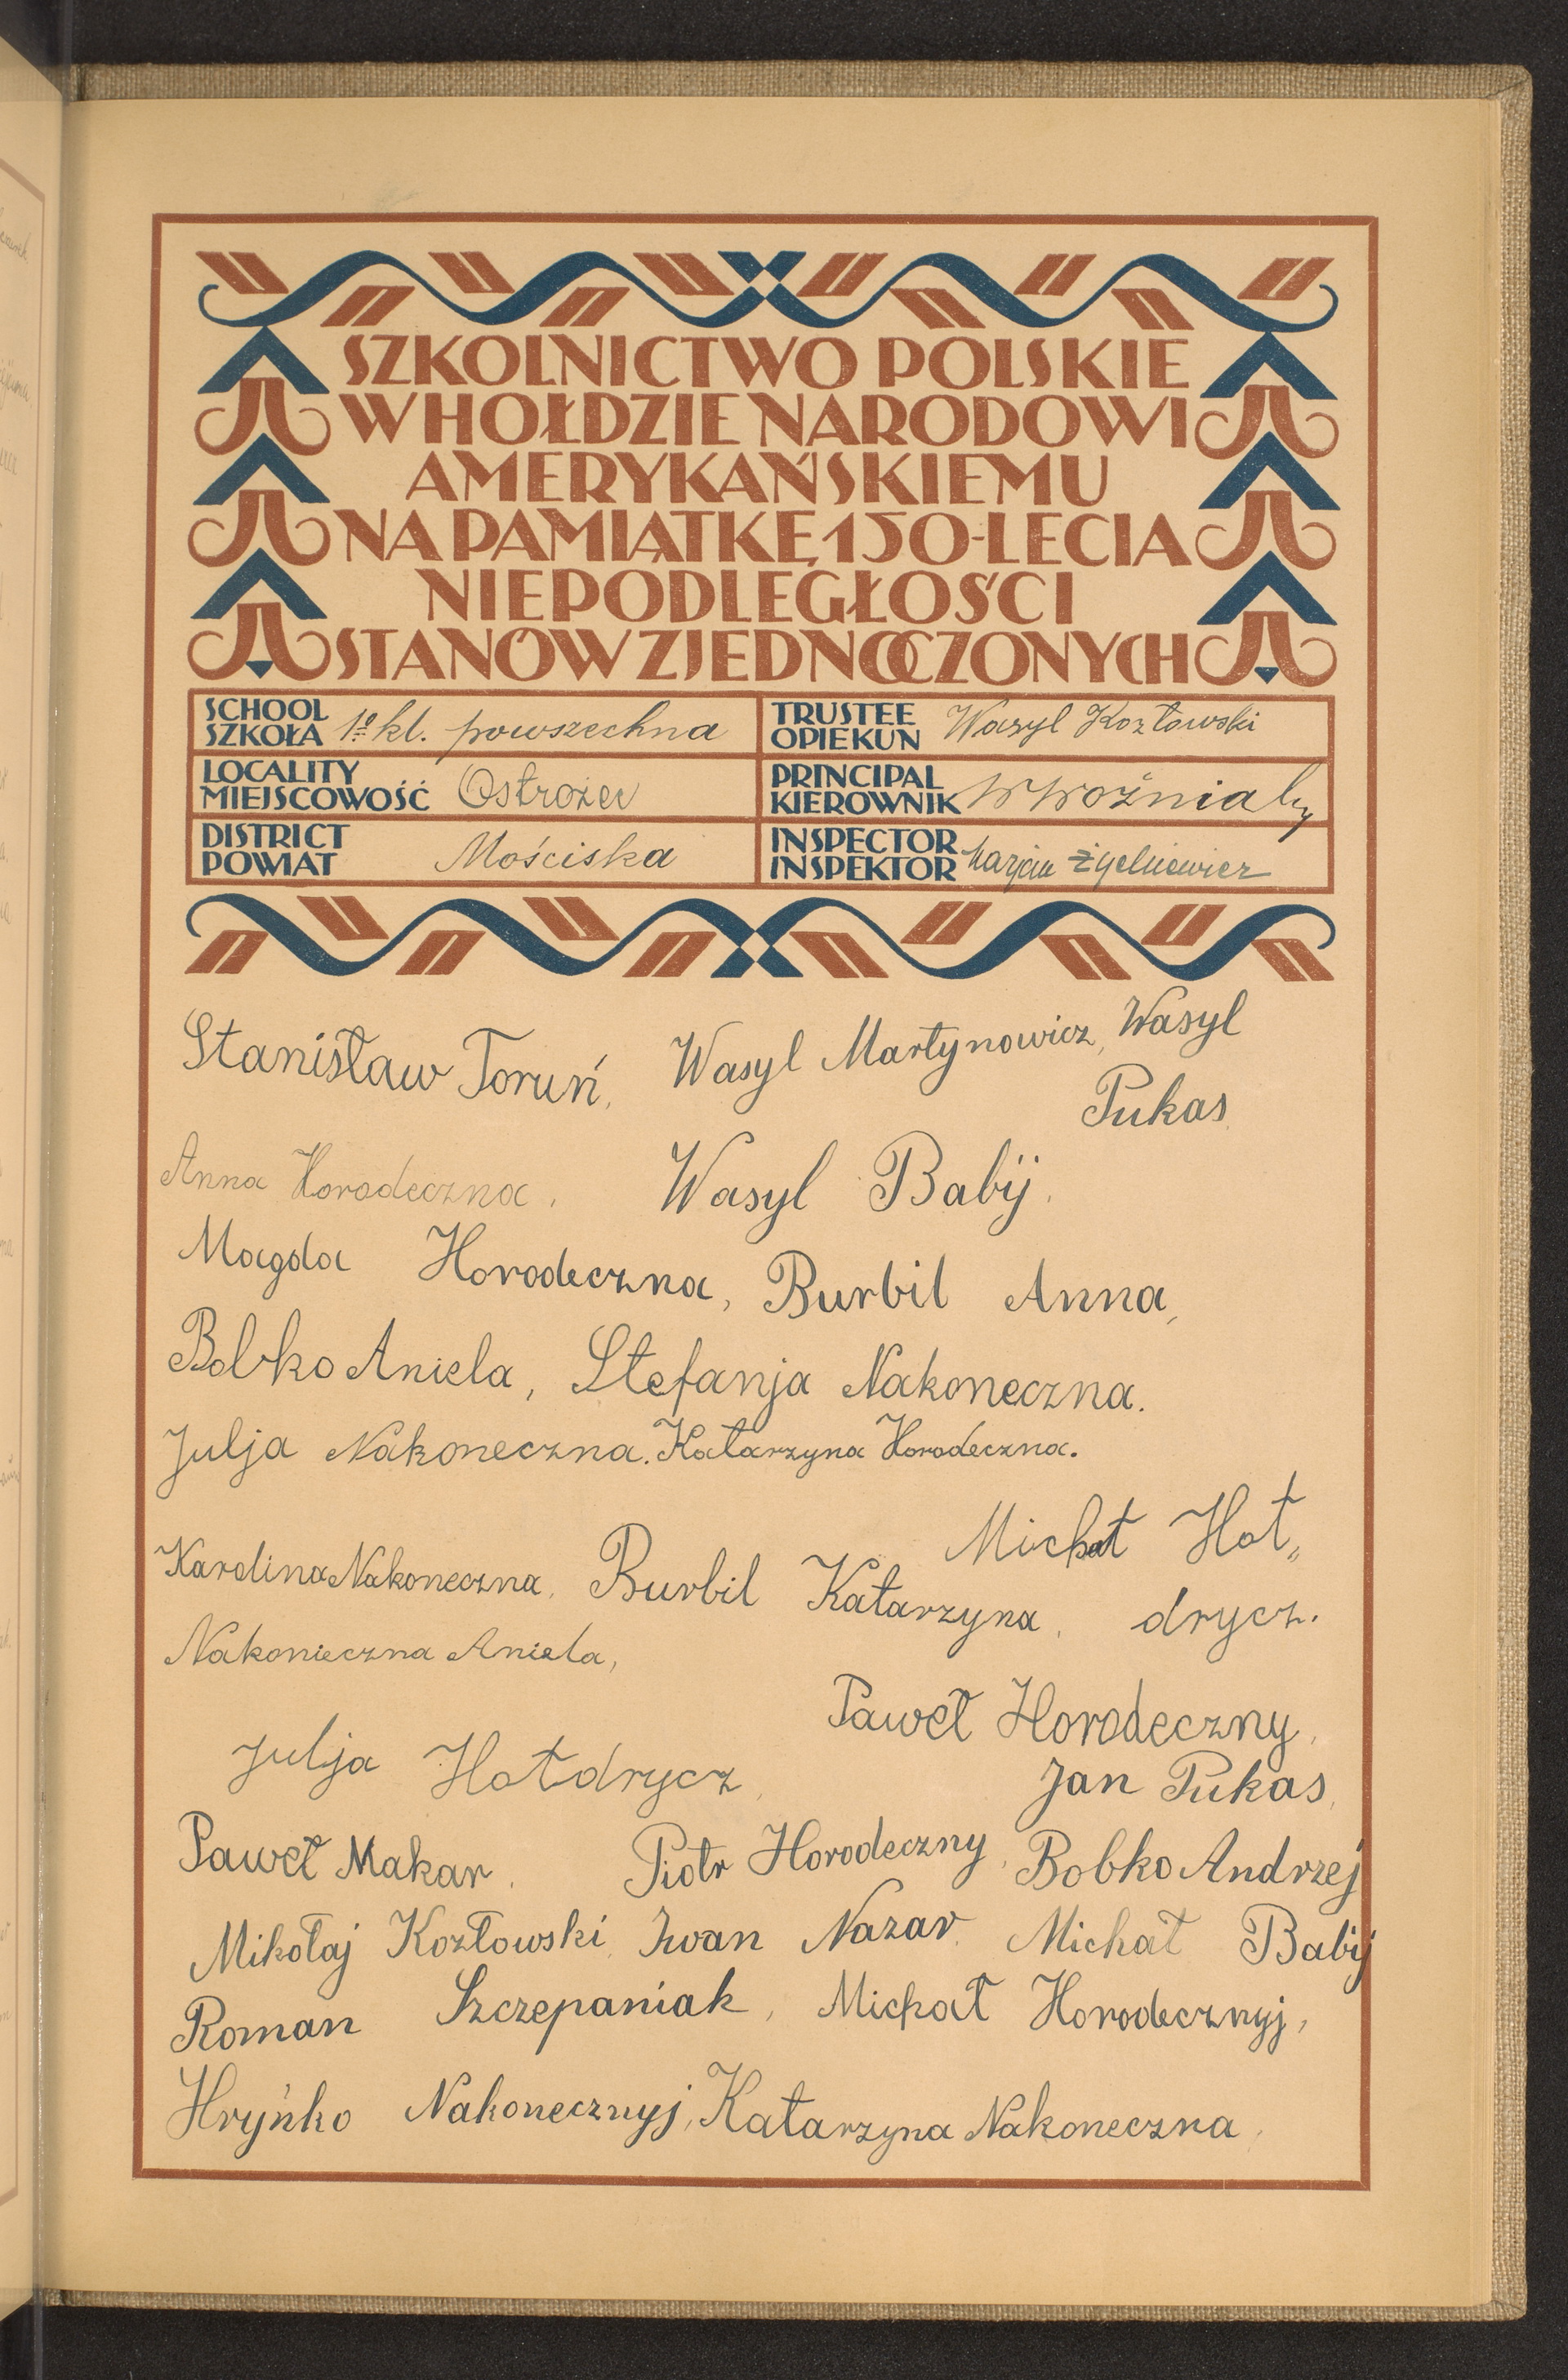 SZKOLNICTWO POLSKIE
W HOŁDZIE NARODOWI
AMERYKAŃSKIEMU
NA PAMIĄTKĘ 150-LECIA
NIEPODLEGŁOŚCI
STANÓW ZJEDNOCZONYCH
SCHOOL
SZKOŁA 1º kl. powszechna
TRUSTEE
OPIEKUN Wasyl Kozłowski
LOCALITY
MIEJSCOWOŚĆ Ostrożec
PRINCIPAL
KIEROWNIK
DISTRICT
POWIAT Mościska
INSPECTOR
INSPEKTOR
Stanisław Toruń, Wasyl Martynowicz, Wasyl
Pukas
Anna Horodeczna, Wasyl Babij,
Magda Horodeczna, Burbil Anna,
Bobko Aniela, Stefanja Nakoneczna.
Julja Nakoneczna. Katarzyna Horodeczna.
Michał Hoł„
Karolina Nakoneczna, Burbil Katarzyna, drycz.
Nakonieczna Aniela,
Paweł Horodeczny,
Julja Hołdrycz,
Jan Pukas,
Paweł Makar, Piotr Horodeczny, Bobko Andrzej
Mikołaj Kozłowski, Iwan Nazar, Michał Babij
Roman Szczepaniak, Michał Horodecznyj,
Hryńko Nakonecznyj, Katarzyna Nakoneczna,